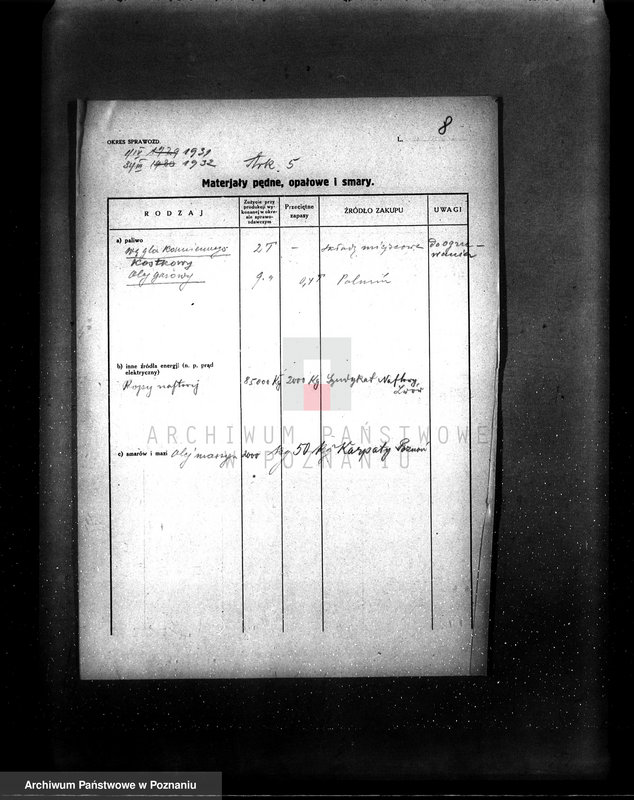 8
OKRES SPRAWOZD.
L.
1/IV 1929 1931
31/III 1930 1932 Ark. 5
Materjały pędne, opałowe i smary.
RODZAJ
Zużycie przy produkcji wykonanej w okresie sprawozdawczym
Przeciętne zapasy
ŹRÓDŁO ZAKUPU
UWAGI
a) paliwo
węgla kamiennego 2 T - składy miejscowe Do ogrze-
Kostkowy wania
Olej gazowy 9 " 0,4 T Polmin
b) inne źródła energji (n. p. prąd elektryczny)
Ropy naftowej 85000 Kg 2000 Kg Syndykat Naftowy,
Lwów
c) smarów i mazi Olej maszyn 2000 kg 50 kg Karpaty Poznań
ARCHIWUM PAŃSTWOWE
W POZNANIU
Archiwum Państwowe w Poznaniu